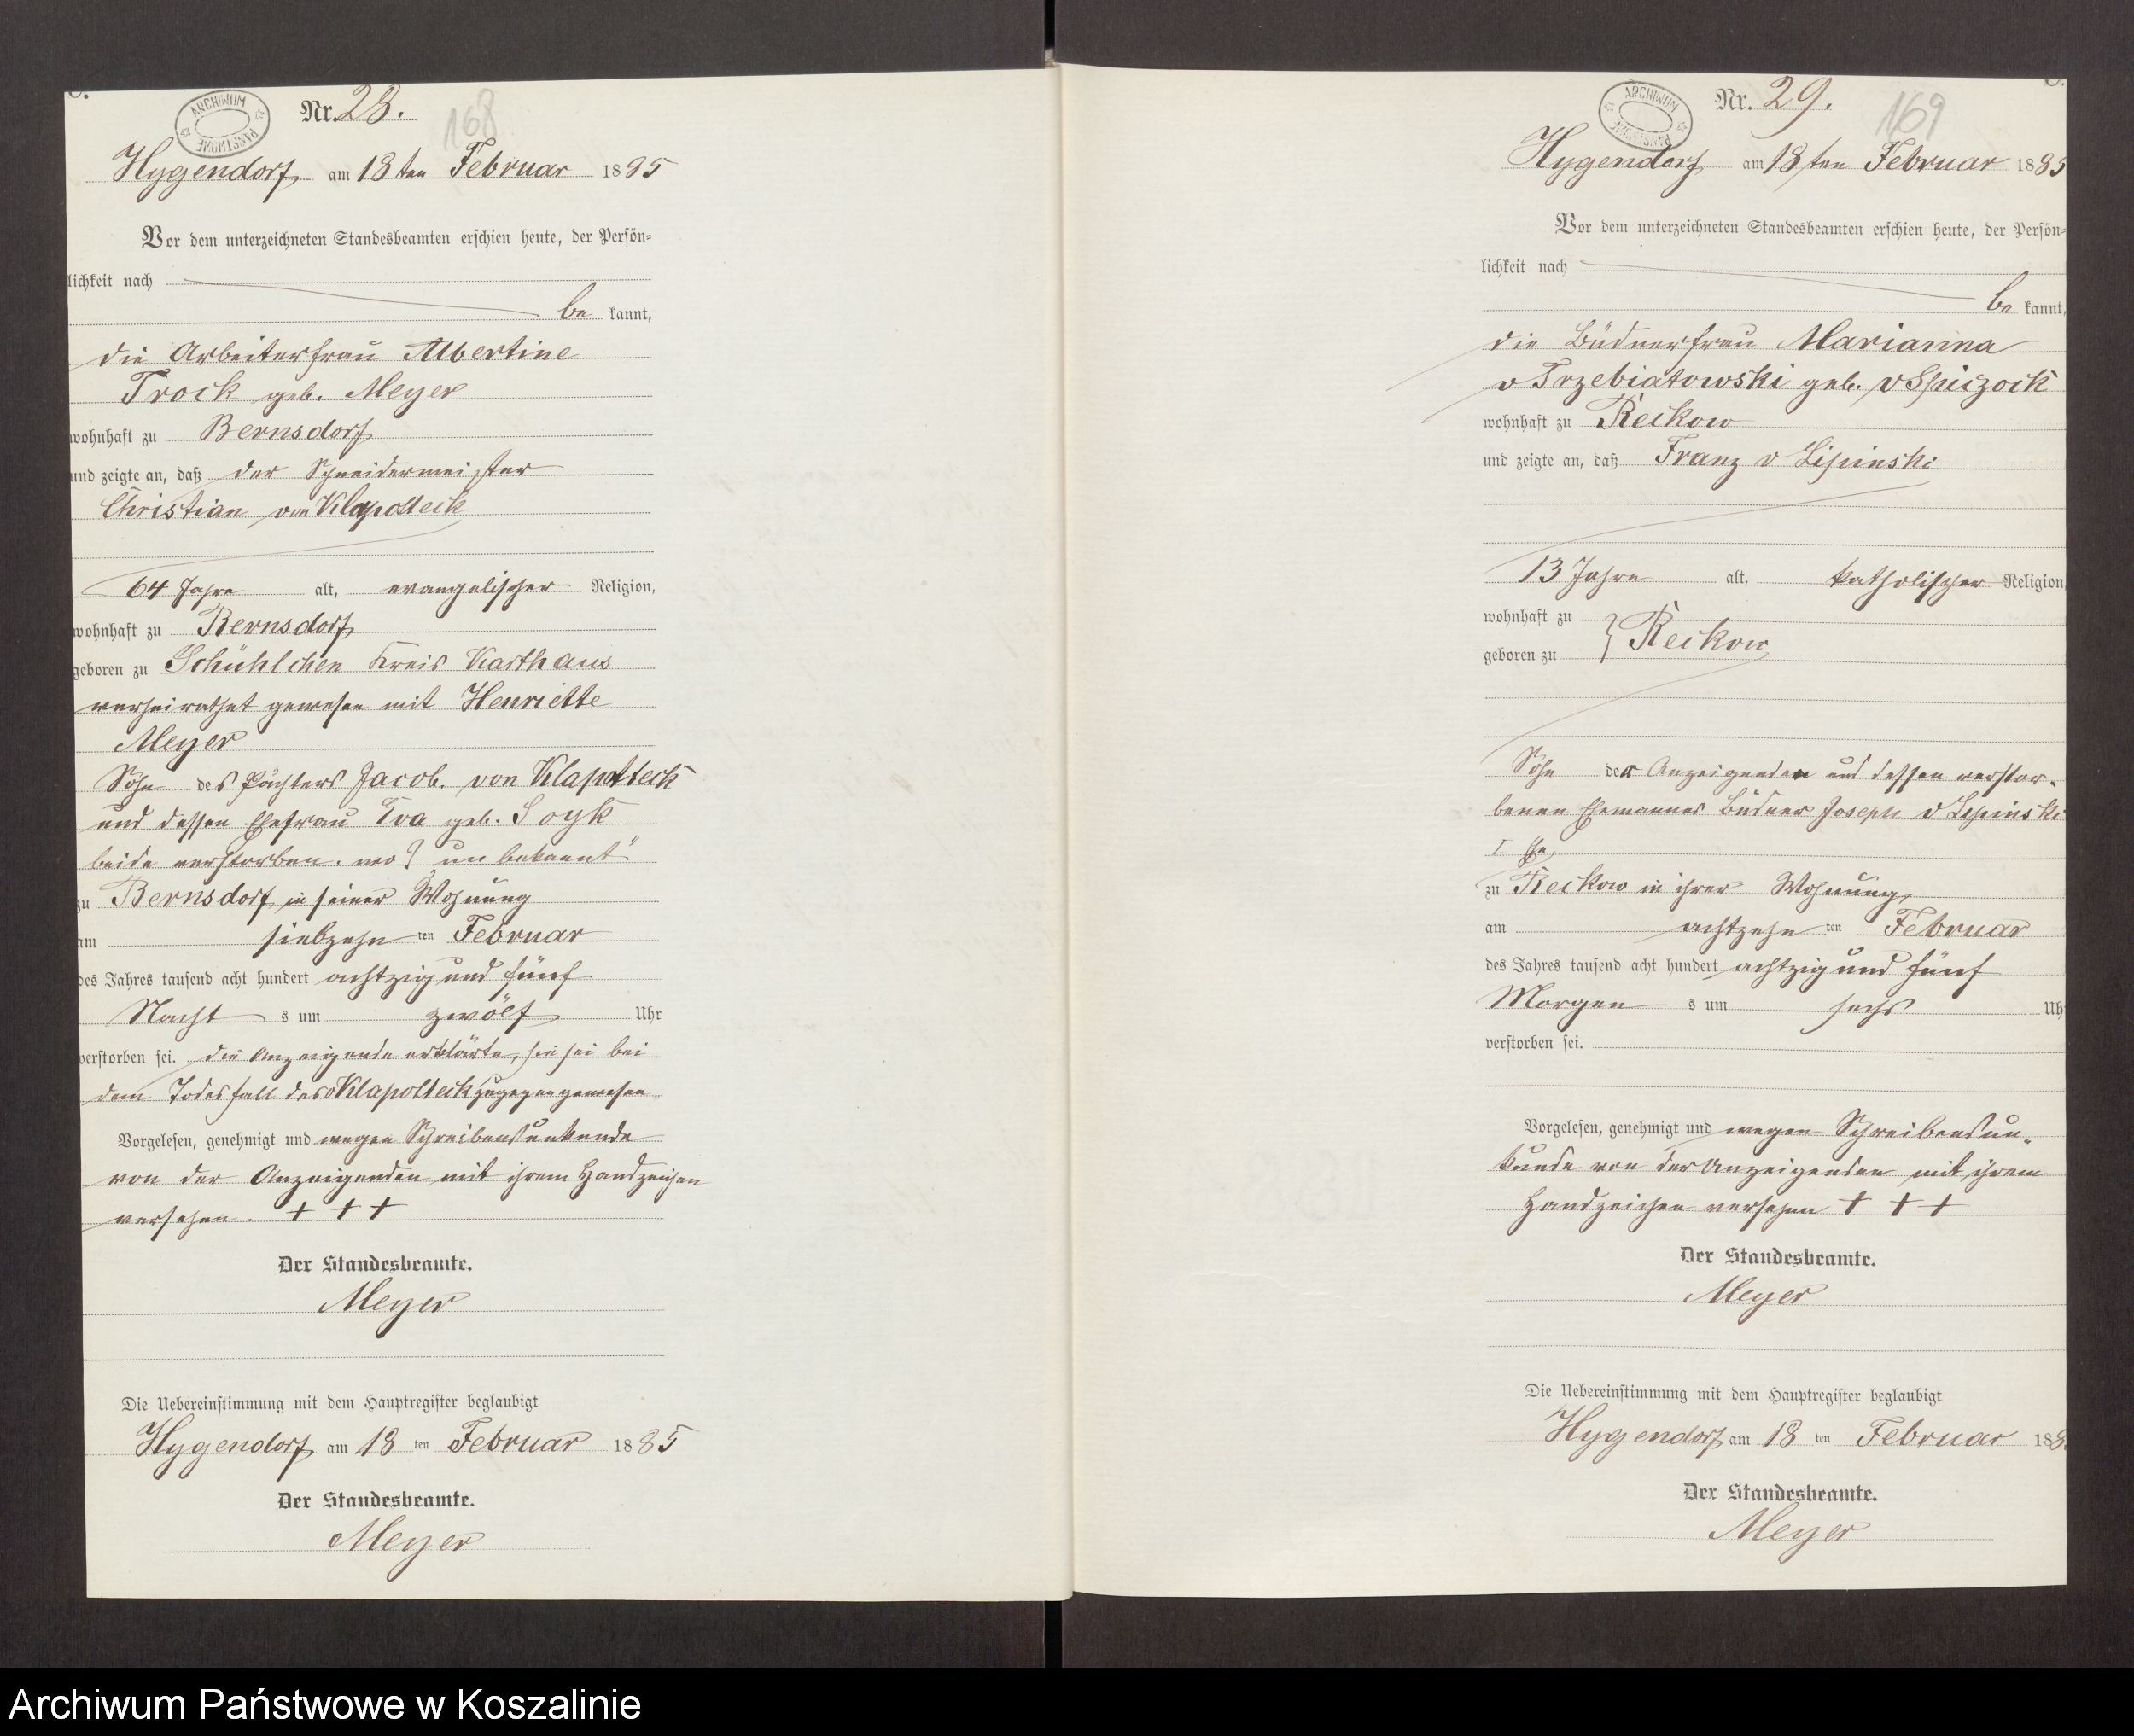 Nr. 28.
168
ARCHIWUM PAŃSTWOWE
Hygendorf am 18ten Februar 1885
Vor dem unterzeichneten Standesbeamten erschien heute, der Persön=
lichkeit nach
be kannt,
die Arbeiterfrau Albertine
Trock geb. Meyer
wohnhaft zu Bernsdorf
und zeigte an, daß der Schneidermeister
Christian von Klapotteck
64 Jahre alt, evangelischer Religion,
wohnhaft zu Bernsdorf
geboren zu Schühlchen Kreis Karthaus
verheirathet gewesen mit Henriette
Meyer
Sohn des Pächters Jacob. von Klapotteck
und dessen Ehefrau Eva geb. Soyk
beide verstorben. wo? unbekannt"
zu Bernsdorf in seiner Wohnung
am siebzehn ten Februar
des Jahres tausend acht hundert achtzig und fünf
Nacht s um zwölf Uhr
verstorben sei. die Anzeigende erklärte, sie sei bei
dem Todesfall des v Klapotteck zugegen gewesen
Vorgelesen, genehmigt und wegen Schreibensunkunde
von der Anzeigenden mit ihrem Handzeichen
versehen. + + +
Der Standesbeamte.
Meyer
Die Uebereinstimmung mit dem Hauptregister beglaubigt
Hygendorf am 18 ten Februar 1885
Der Standesbeamte.
Meyer
Nr. 29.
169
ARCHIWUM PAŃSTWOWE
Hygendorf am 18ten Februar 1885
Vor dem unterzeichneten Standesbeamten erschien heute, der Persön=
lichkeit nach
be kannt,
die Büdnerfrau Marianna
v Trzebiatowski geb. v Spiczock
wohnhaft zu Reikow
und zeigte an, daß Franz v Lipinski
13 Jahre alt, katholischer Religion
wohnhaft zu } Reikow
geboren zu
Sohn der Anzeigenden und dessen verstor-
benen Ehemannes Büdner Joseph v Lipinski
I Ehe
zu Reikow in ihrer Wohnung,
am achtzehn ten Februar
des Jahres tausend acht hundert achtzig und fünf
Morgen s um sechs Uh
verstorben sei.
Vorgelesen, genehmigt und wegen Schreibensun-
kunde von der Anzeigenden mit ihrem
Handzeichen versehen + + +
Der Standesbeamte.
Meyer
Die Uebereinstimmung mit dem Hauptregister beglaubigt
Hygendorf am 18 ten Februar 188
Der Standesbeamte.
Meyer
Archiwum Państwowe w Koszalinie